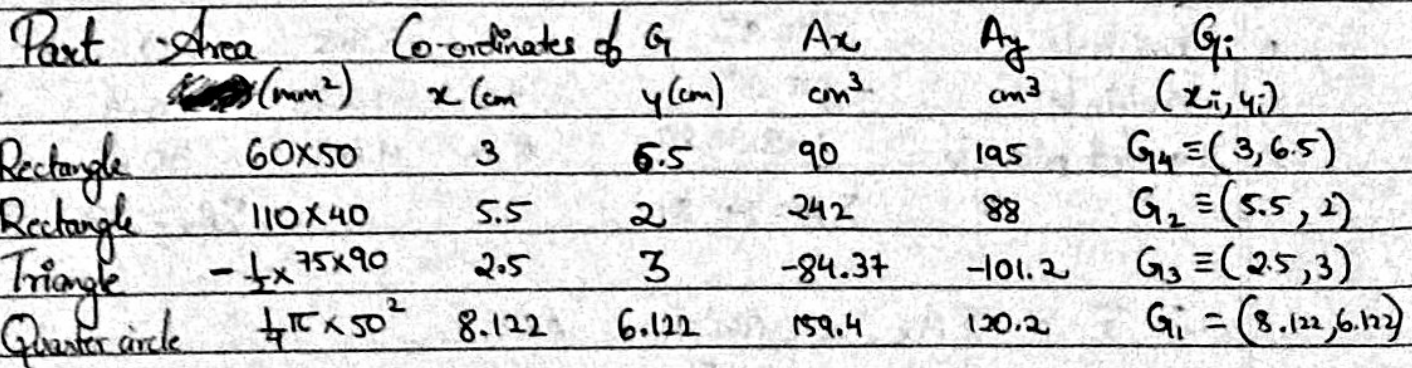 Part Area Co-ordinates of G Ax Ay Gi
(mm²) x (cm y (cm) cm³ cm³ (xi, yi)
Rectangle 60×50 3 6.5 90 195 G4 ≡ (3, 6.5)
Rectangle 110×40 5.5 2 242 88 G2 ≡ (5.5, 2)
Triangle -½×75×90 2.5 3 -84.37 -101.2 G3 ≡ (2.5, 3)
Quarter circle ¼π×50² 8.122 6.122 159.4 120.2 G1 = (8.122, 6.122)